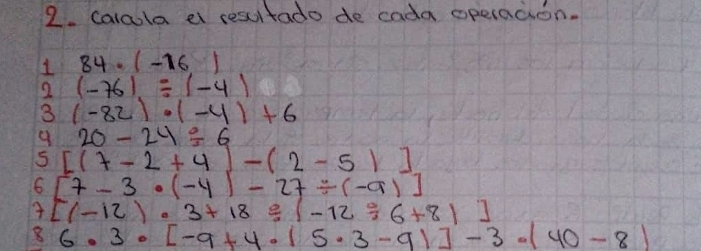 2. Calcula el resultado de cada operación.
1 84 · (-16)
2 (-76) ÷ (-4)
3 (-82) · (-4) + 6
4 20 - 24 ÷ 6
5 [(7 - 2 + 4) - (2 - 5)]
6 [7 - 3 · (-4) - 27 ÷ (-9)]
7 [(-12) · 3 + 18 ÷ (-12 ÷ 6 + 8)]
8 6 · 3 · [-9 + 4 · (5 · 3 - 9)] - 3 · (40 - 8)